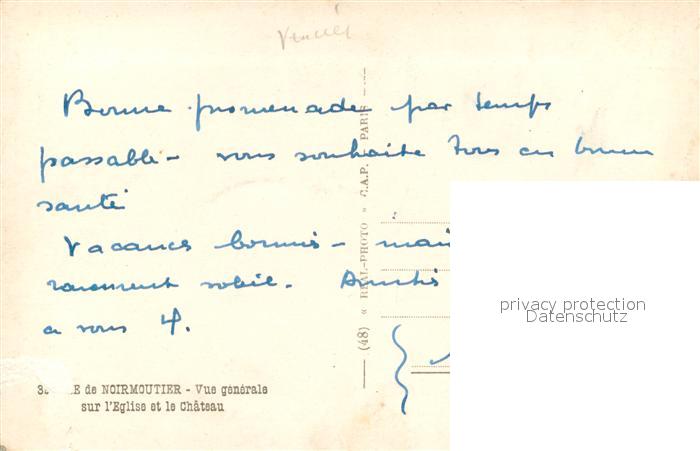 Bonne promenade par temps
passable - vous souhaite tous en bonne
santé
Vacances bonnes - mais
rarement soleil. Amitiés
a vous 4.
E de NOIRMOUTIER - Vue générale
sur l'Eglise et le Château
(48) « REAL-PHOTO » C.A.P. - PARIS
privacy protection
Datenschutz